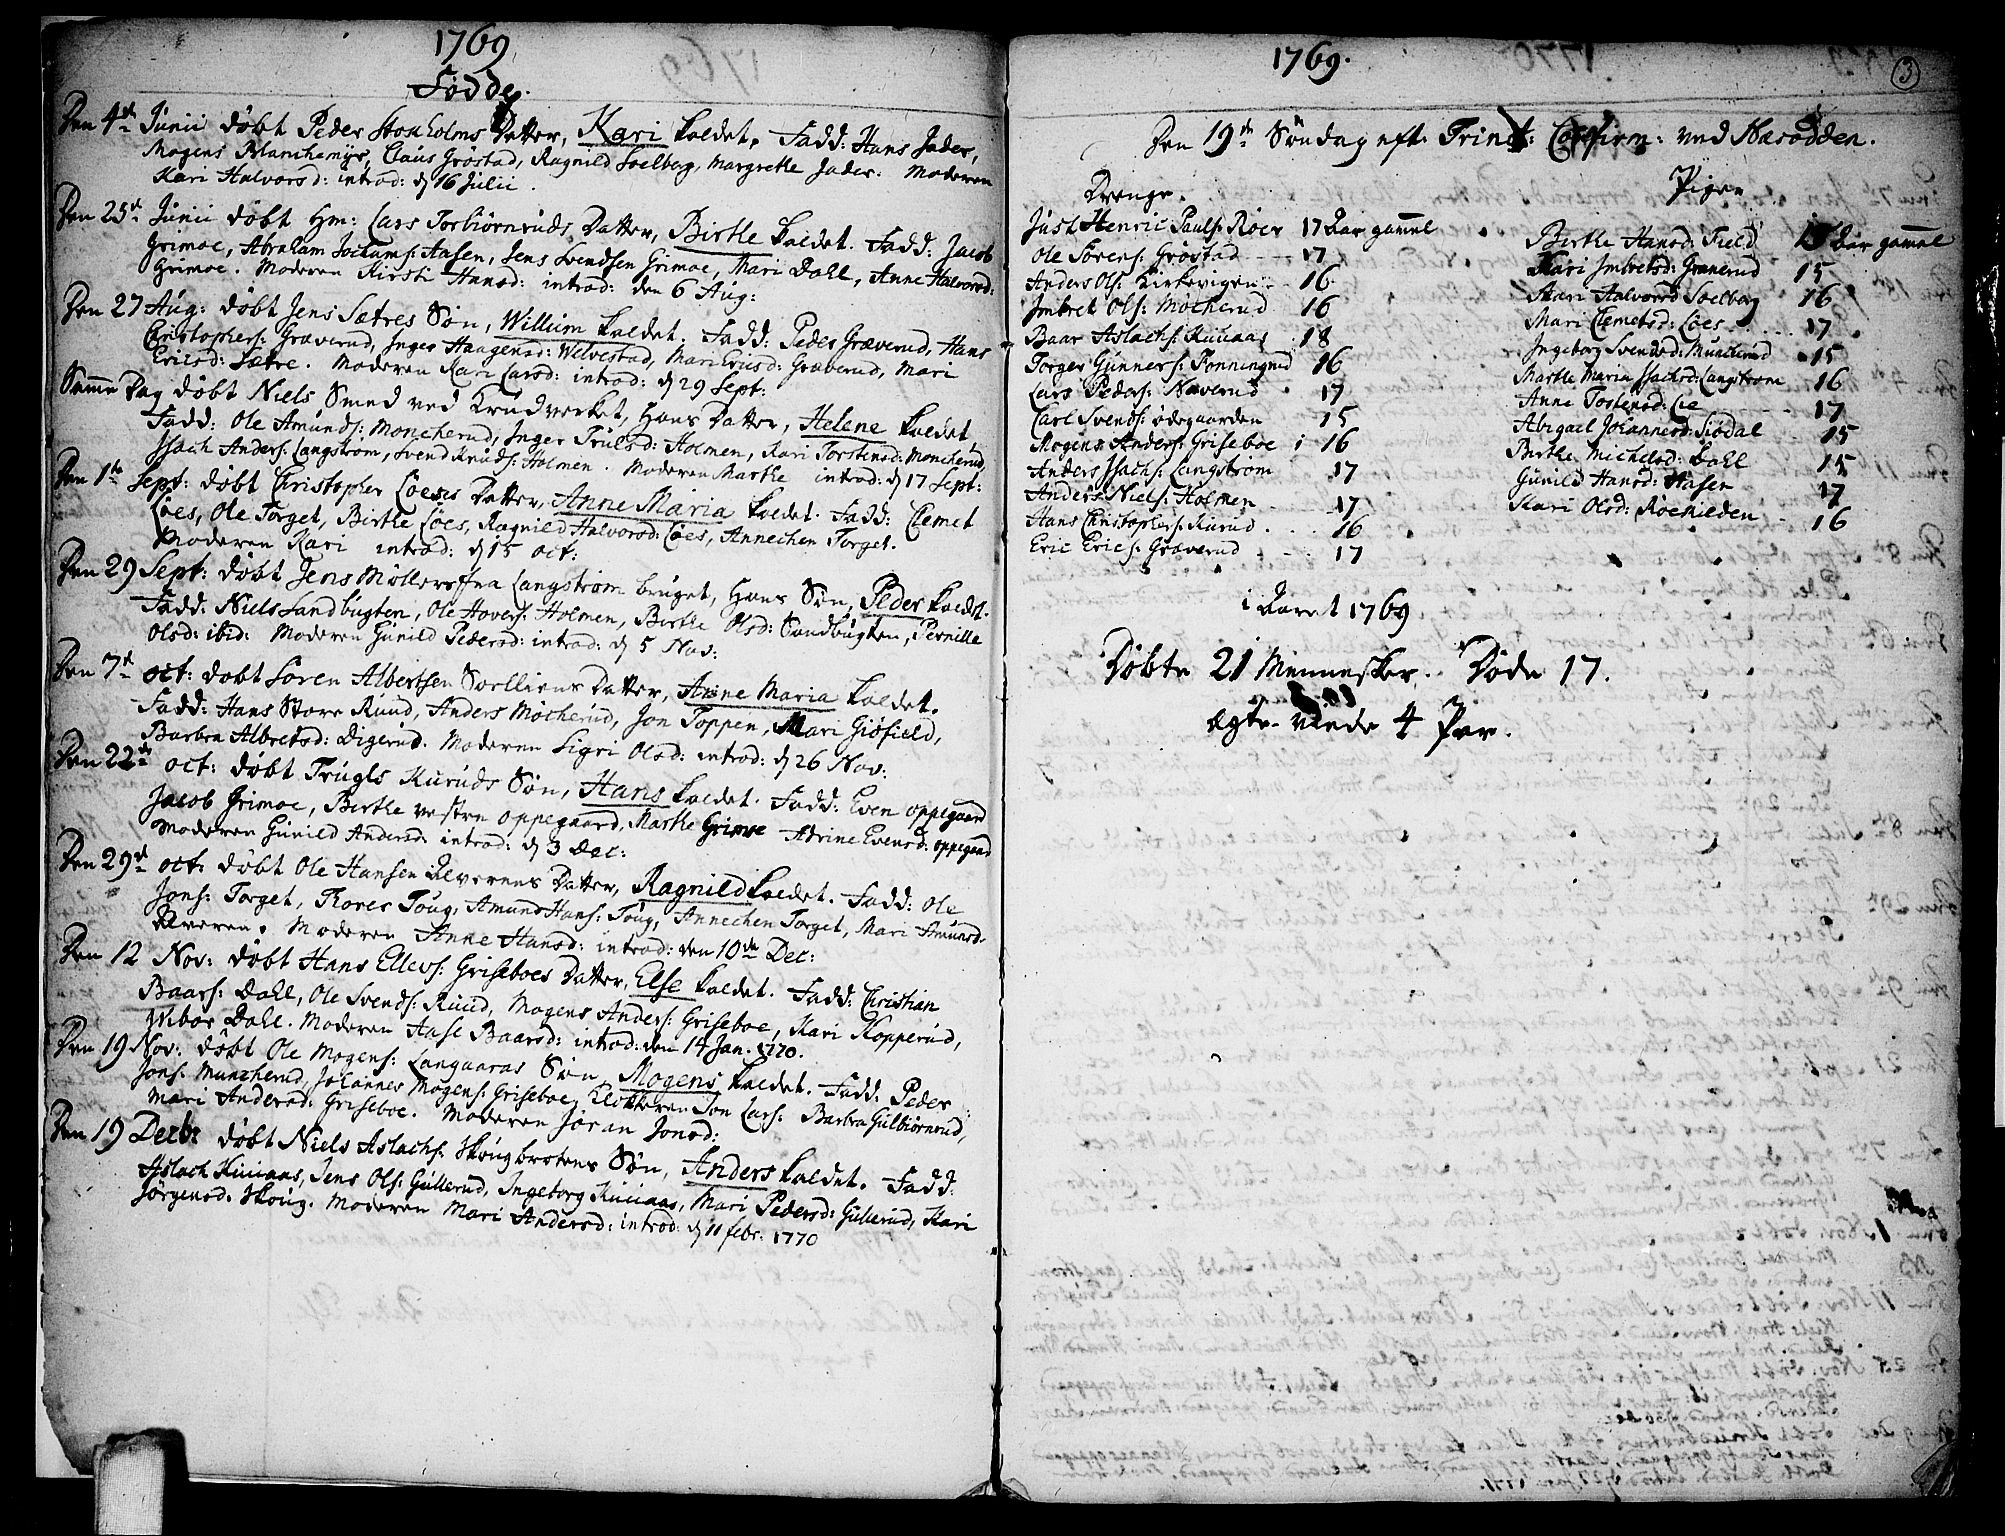 1769
Fødde.
Den 4de Junii døbt Peder Stockholms Datter, Kari kaldet. Fadd: Hans Jader,
Mogens Blanchemyr, Claus Grøstad, Ragnild Soelberg, Margrethe Jader. Moderen
Kari Halvorsd: introd: d 16 Julii.
Den 25de Junii døbt Hm: Lars Torbiørnruds Datter, Birthe kaldet. Fadd: Jacob
Grimoe, Abraham Jochums: Aasen, Jens Svendsen Grimoe, Mari Dahl, Anne Halvorsd:
Grimoe. Moderen Kirsti Hansd: introd: den 6 Aug:
Den 27 Aug: døbt Jens Sætres Søn, Willum kaldet. Fadd: Peder Græverud, Hans
Christophers: Græverud, Inger Haagensd: Welvestad, Mari Ericsd: Græverud, Mari
Ericsd: Sætre. Moderen Kari Larsd: introd: d 29 Sept:
Samme Dag døbt Niels Smed ved Krudverket, Hans Datter, Helene kaldet.
Fadd: Ole Amunds: Moncherud, Inger Trulsd: Holmen, Kari Torstensd: Moncherud,
Isach Anders: Langstrøm, Svend Knuds: Holmen. Moderen Marthe introd: d 17 Sept:
Den 1te Sept: døbt Christopher Løeses Datter, Anne Maria kaldet. Fadd: Clemet
Løes, Ole Torget, Birthe Løes, Ragnild Halvorsd: Løes, Annechen Torget.
Moderen Kari introd: d 15 oct:
Den 29 Sept: døbt Jens Møllers fra Langstrøm bruget, Hans Søn, Peder kaldet.
Fadd: Niels Sandbugten, Ole Hovers: Holmen, Birthe Olsd: Sandbugten, Pernille
Olsd: ibid: Moderen Gunild Pedersd: introd: d 5 Nov:
Den 7de oct: døbt Søren Albertsen Soelliens Datter, Anne Maria kaldet.
Fadd: Hans Store Ruud, Anders Mocherud, Jon Toppen, Mari Giøfield,
Barbra Albretsd: Digerud. Moderen Sigri Olsd: introd: d 26 Nov:
Den 22de oct: døbt Trugls Kuruds Søn, Hans kaldet. Fadd: Even oppegaard
Jacob Grimoe, Birthe vestre oppegaard, Marthe Grimoe Adrine Evensd: oppegaard
Moderen Gunild Andersd: introd: d 3 Dec:
Den 29de oct: døbt Ole Hansen Reverens Datter, Ragnild kaldet. Fadd: Ole
Jons: Torget, Thores Toug, Amund Hans: Toug, Annechen Torget, Mari Amunsd.
Reveren. Moderen Anne Hansd: introd: den 10de Dec:
Den 12 Nov: døbt Hans Ellevs: Griseboes Datter, Else kaldet. Fadd: Christian
Baars: Dahl, Ole Svends: Ruud, Mogens Anders: Griseboe, Kari Kopperud,
Wibor Dahl. Moderen Aase Baarsd: introd: den 14 Jan. 1770.
Den 19 Nov: døbt Ole Mogens: Langaaras Søn, Mogens kaldet. Fadd: Peder
Jons: Muncherud, Johannes Mogens: Griseboe, Klokkeren Jon Lars: Barbra Gulbiørnrud,
Mari Andersd: Griseboe. Moderen Jøran Jonsd:
Den 19 Decbr døbt Niels Aslachs: Skougbrotens Søn, Anders kaldet. Fadd:
Aslach Kiuaas, Jens Ols: Gullerud, Ingeborg Kiuaas, Mari Pedersd: Gullerud, Kari
Jørgensd. Skoug. Moderen Mari Andersd: introd: d 11 febr. 1770
1769.
3
Den 19de Søndag eft: Trinit: Confirm: ved Nasodden.
Drenge.
Just Henric Pauls: Roer 17 Aar gammel
Ole Sørens: Grøstad 17
Anders Ols: Kirkevigen 16
Imbret Ols: Mocherud 16
Baar Aslachs: Kiuaas 18
Torger Gunners: Tonningrud 16
Lars Peders: Næverud 17
Carl Svends: ødegaarden 15
Mogens Anders: Griseboe 16
Anders Isachs: Langstrøm 17
Anders Niels: Holmen 17
Hans Christophers: Kurud 16
Eric Erics: Græverud 17
Piger
Birthe Hansd: Field 15 Aar gammel
Kari Imbretsd: Granerud 15
Kari Halvorsd Soelberg 16
Mari Clemetsd: Løes 17
Ingeborg Svendsd: Muncherud 15
Marthe Maria Isachsd: Langstrøm 16
Anne Tostensd: Lie 17
Abigael Johannesd: Siødal 15
Birthe Michelsd: Dahl 15
Gunild Hansd: Aasen 17
Kari Olsd: Roeskilden 16
i Aaret 1769
Døbte 21 Mennesker. Døde 17.
Egte-viede 4 Par.